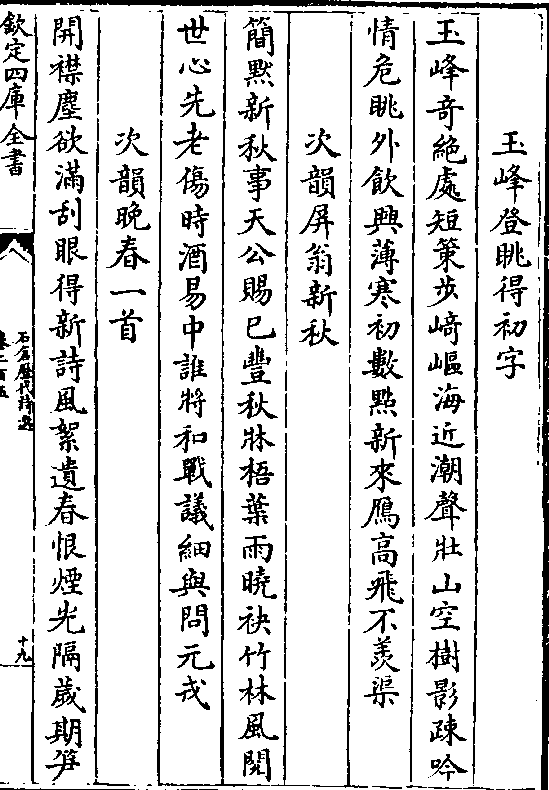 玉峰登眺得初字
玉峰奇絶處短策步﨑嶇海近潮聲壯山空樹影踈吟
情危眺外飲興薄寒初數㸃新來鴈高飛不羨渠
次韻屏翁新秋
簡黙新秋事天公賜已豐秋牀梧葉雨曉袂竹林風閲
世心先老傷時酒易中誰將和戰議細與問元戎
次韻晚春一首
開襟塵欲滿刮眼得新詩風絮遺春恨煙光隔歲期筍
欽定四庫全書
石倉歷代詩選
卷二百五
十九